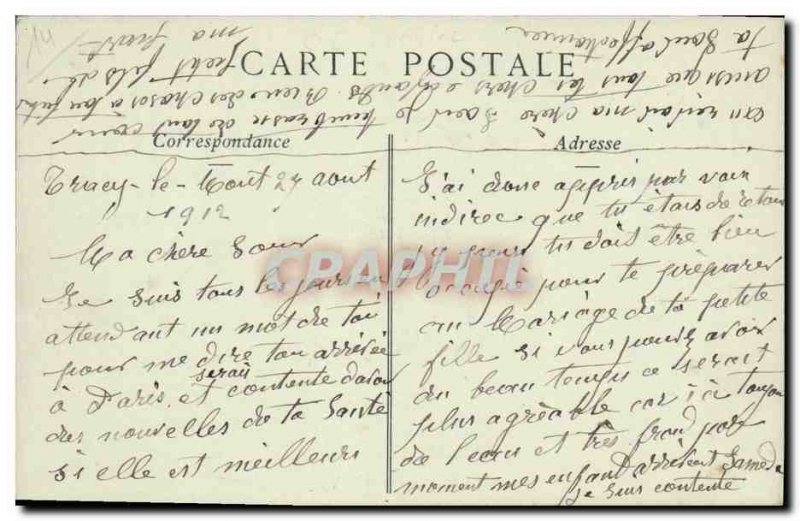 CARTE POSTALE
Correspondance
Adresse
Tracy-le-Mont 27 aout
1912
Ma chère Soeur
Je suis tous les jours en
attendant un mot de toi
pour me dire ton arrivée
à Paris, et serais contente d'avoir
des nouvelles de ta Santé
si elle est meilleurs
J'ai donc appris par voix
indirec que tu étais de retour
tu dois être bien
occupé pour te préparer
au Mariage de ta petite
fille si vous pouvez avoir
du beau temps ce serait
plus agréable car ici toujour
de l'eau et très froid par
moment mes enfant arrivent Samedi
je suis contente
au revoir ma chère Soeur je t'embrasse de tout coeur
ainsi que tous les chers enfants. Bien des choses à
ta Soeur affectionnée
14
CPAPHIL